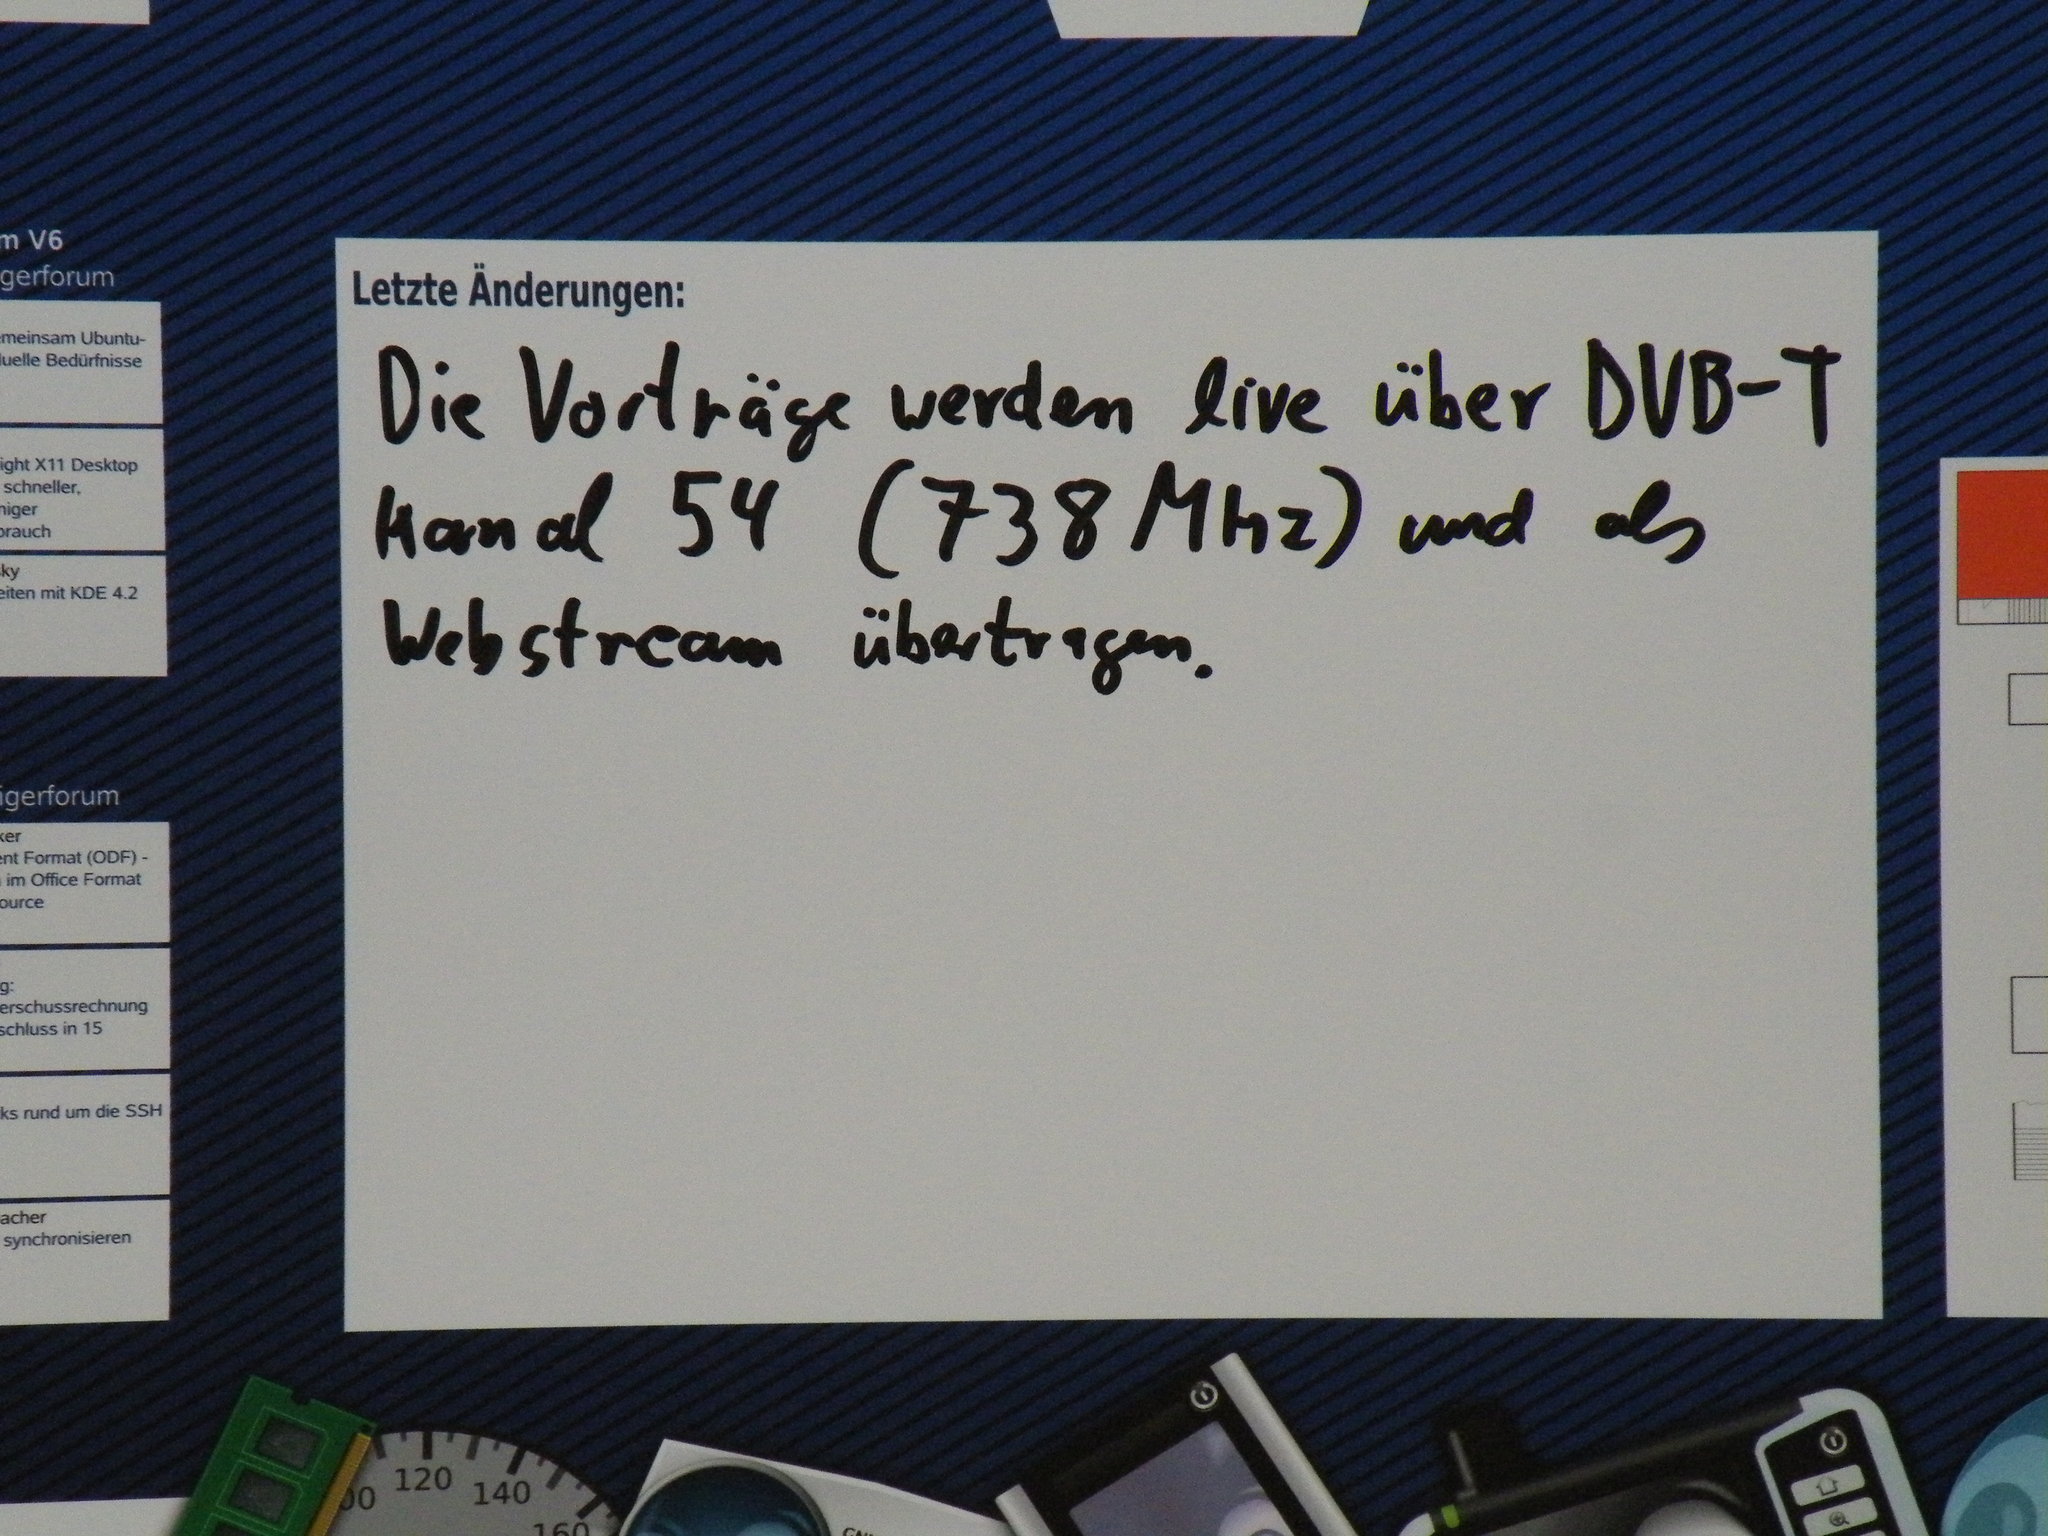 m V6
gerforum
emeinsam Ubuntu-
luelle Bedürfnisse
ight X11 Desktop
schneller,
niger
brauch
ky
eiten mit KDE 4.2
igerforum
ker
ent Format (ODF) -
im Office Format
ource
g:
erschussrechnung
schluss in 15
ks rund um die SSH
acher
synchronisieren
Letzte Änderungen:
Die Vorträge werden live über DVB-T
Kanal 54 (738 Mhz) und als
Webstream übertragen.
00 120 140 160